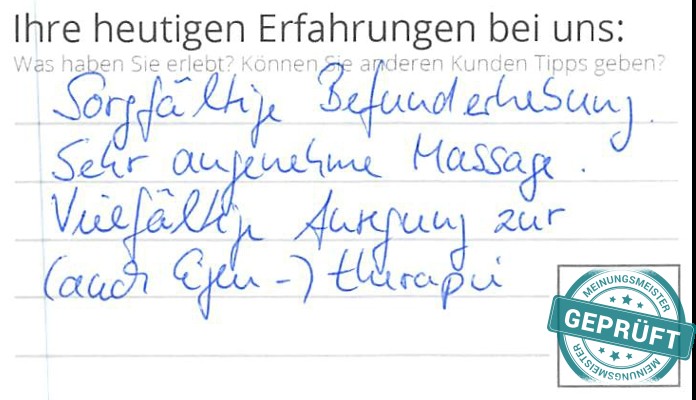 Ihre heutigen Erfahrungen bei uns:
Was haben Sie erlebt? Können Sie anderen Kunden Tipps geben?
Sorgfältige Befunderhebung.
Sehr angenehme Massage.
Vielfältige Anregung zur
(auch Eigen-) therapie
MEINUNGSMEISTER
GEPRÜFT
MEINUNGSMEISTER